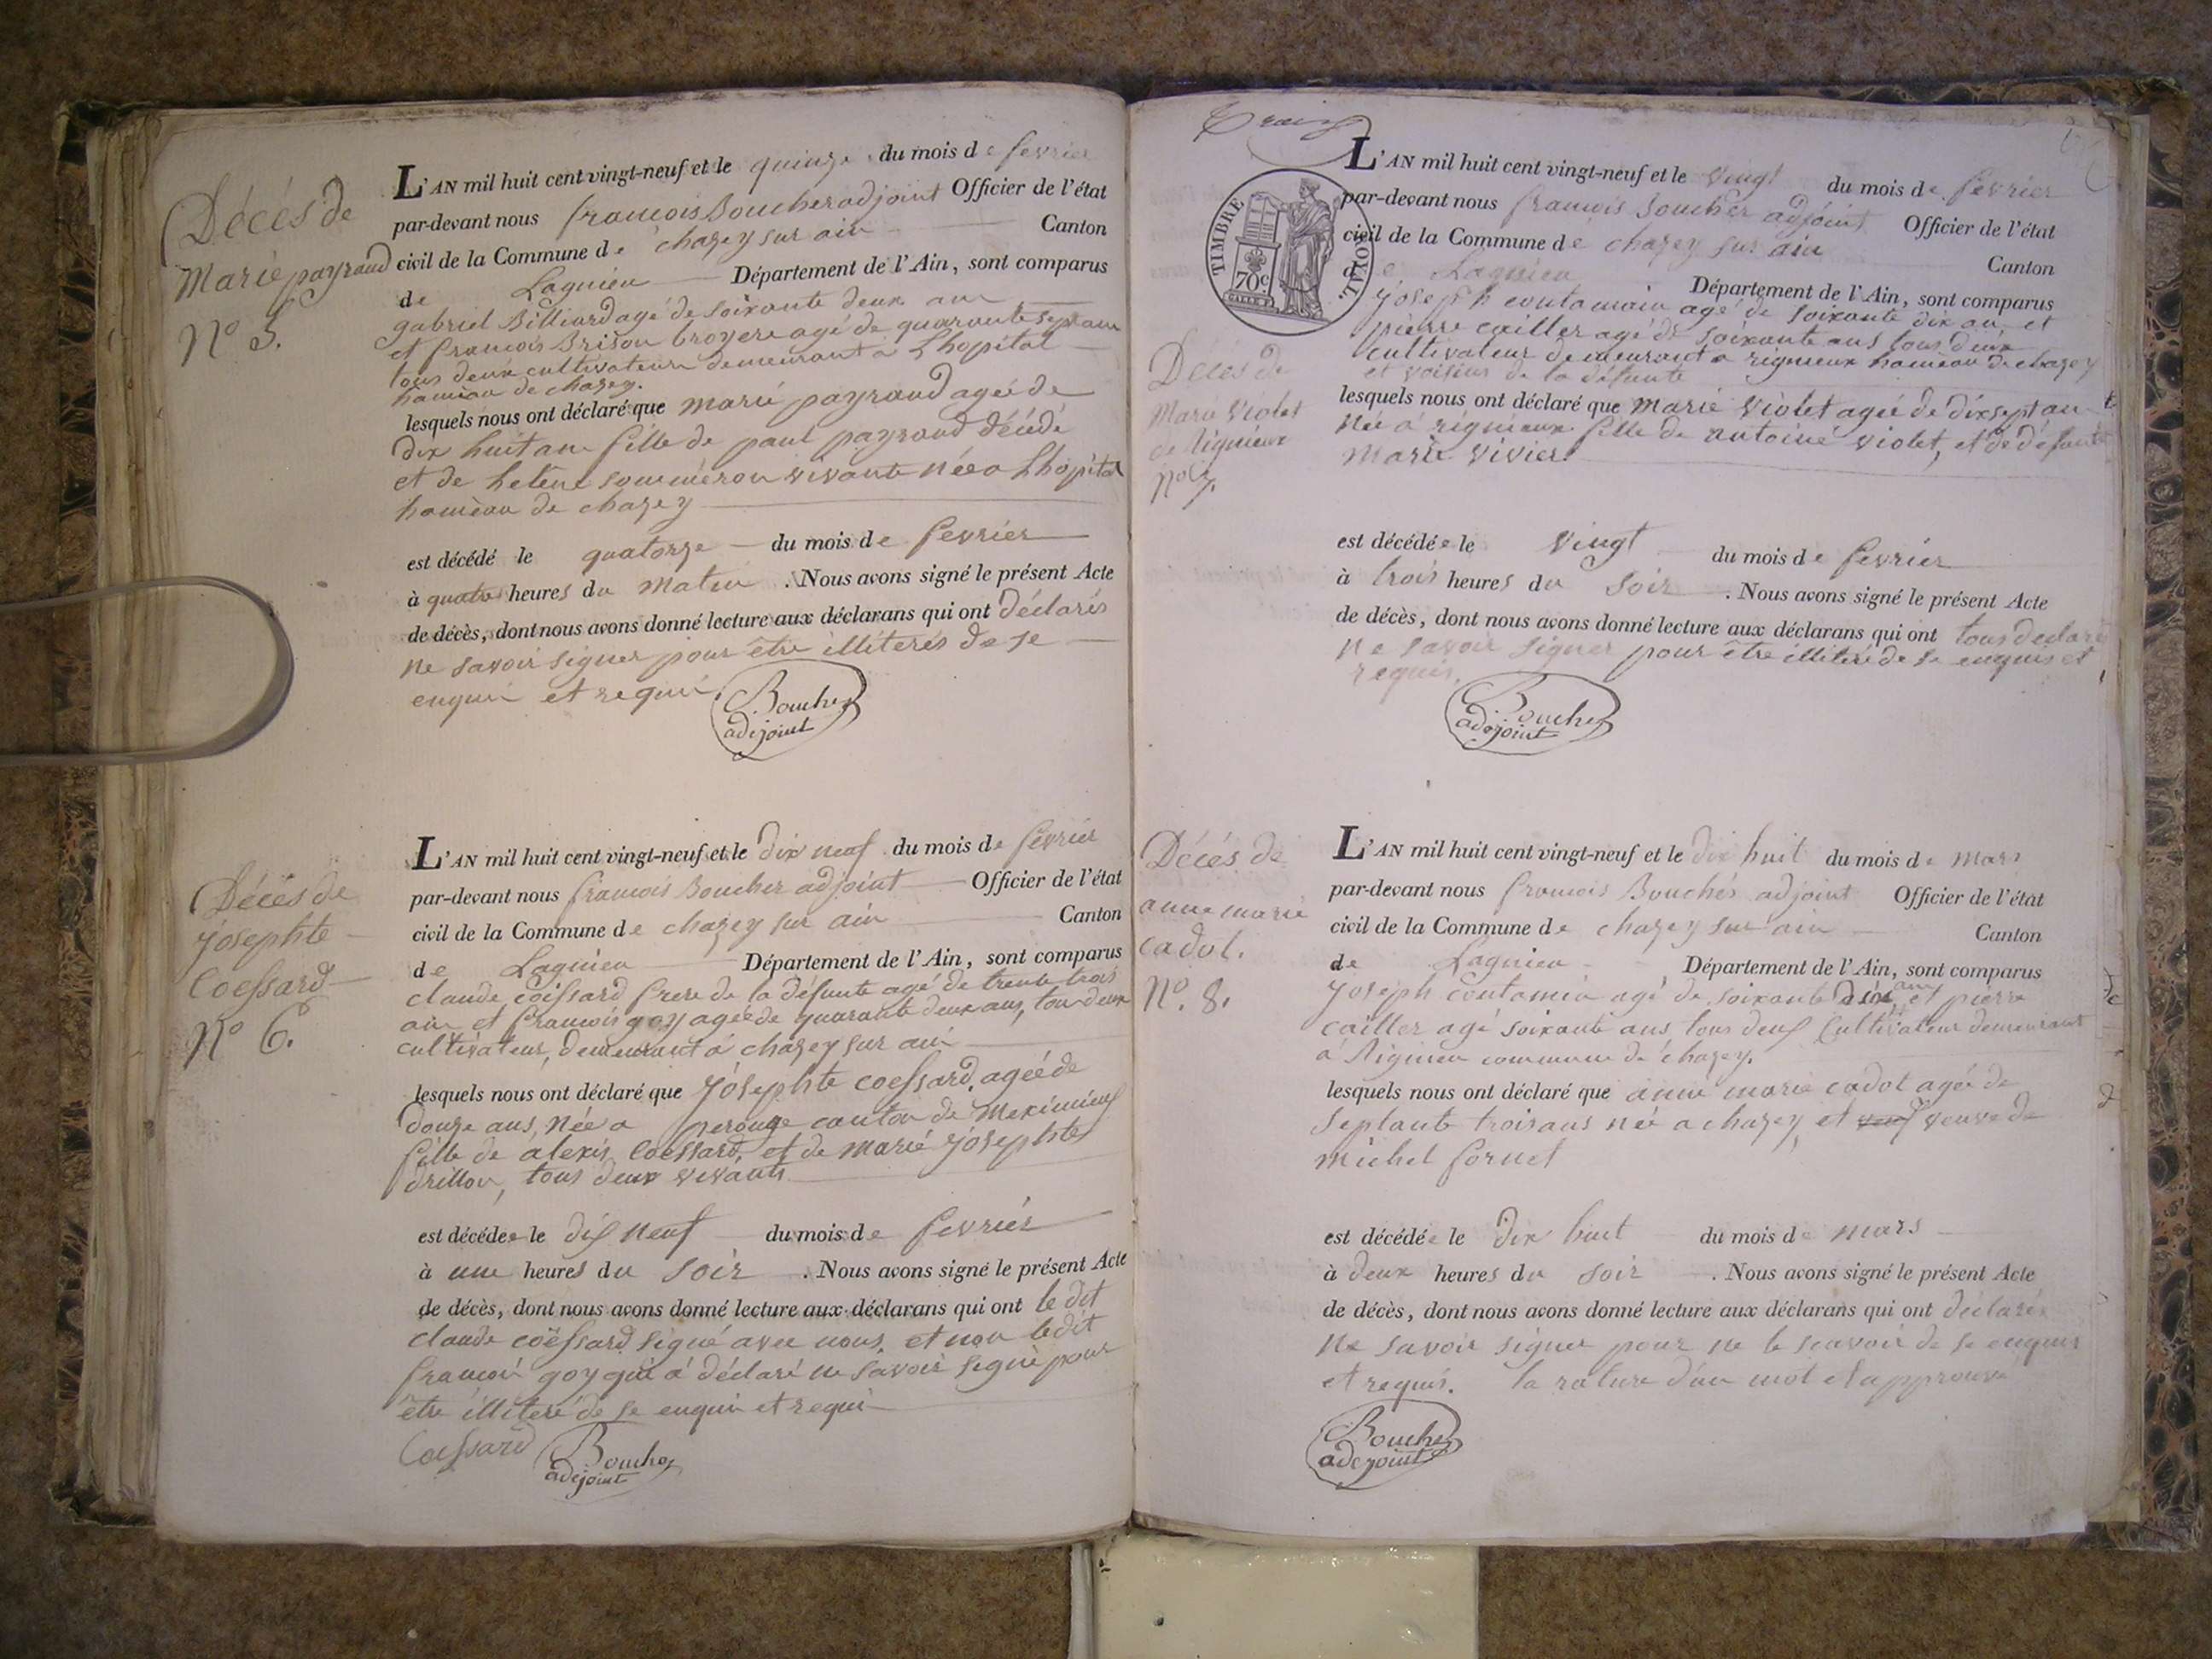 Décés de
Marie payraud
N° 5.
L'AN mil huit cent vingt-neuf et le quinze du mois de fevrier
par-devant nous francois Boucher adjoint Officier de l'état
civil de la Commune de chazey sur ain Canton
de Lagnieu Département de l'Ain, sont comparus
gabriel Billiard agé de soixante deux an
et francois Brison broyere agé de quarante sept an
tous deux cultivateur demeurant à Lhopital
hameau de chazey.
lesquels nous ont déclaré que marie payraud ageé de
dix huit an fille de paul payraud décédé
et de helene souméron vivante née a Lhopital
hameau de chazey
est décédé le quatorze du mois de fevrier
à quatre heures du matin . Nous avons signé le présent Acte
de décès, dont nous avons donné lecture aux déclarans qui ont déclarés
ne savoir signer pour être illiterés de se
enquis et requi
Boucher
adejoint
Décés de
josephte
Coessard
N° 6.
L'AN mil huit cent vingt-neuf et le dix neuf du mois de fevrier
par-devant nous francois Boucher adjoint Officier de l'état
civil de la Commune de chazey sur ain Canton
de Lagnieu Département de l'Ain, sont comparus
claude coissard frere de la défunte agé de trente trois
ain et francois goy ageé de quarante deux ans, tou deux
cultivateur, demeurant á chazey sur ain
lesquels nous ont déclaré que josephte coessard, ageé de
douze ans, née a perouge canton de Meximieux
fille de alexis Coessard, et de marié josephte
drillon, tous deux vivants
est décédée le dix neuf du mois de fevrier
à une heures du soir . Nous avons signé le présent Acte
de décès, dont nous avons donné lecture aux déclarans qui ont le dit
claude coëssard signé avec nous, et non ledit
francoi goy qui a déclaré ne savoir signé pour
être illiteré de se enqui et requi
Coessard Boucher
adejoint
Trois
TIMBRE ROYAL.
70c
L'AN mil huit cent vingt-neuf et le vingt du mois de fevrier
par-devant nous francois Boucher adjoint Officier de l'état
civil de la Commune de chazey sur ain Canton
de Lagnieu Département de l'Ain, sont comparus
joseph contamain agé de soixante dix an, et
pierre cailler agé de soixante ans tous deux
cultivateur demeurant a rignieux hameau de chazey
et voisins de la défunte
Deces de
Marie Violet
de Rignieux
N° 7.
lesquels nous ont déclaré que marie violet ageé de dix sept an
née á rignieux fille de antoine violet, et de défunte
Marie Vivier
est décédée le vingt du mois de fevrier
à trois heures du soir . Nous avons signé le présent Acte
de décès, dont nous avons donné lecture aux déclarans qui ont tous declaré
ne savoir signer pour être illiteré de se enquis et
requis.
Boucher
adejoint
Décés de
anne marie
cadot.
N°. 8.
L'AN mil huit cent vingt-neuf et le dix huit du mois de mars
par-devant nous francois Bouchér adjoint Officier de l'état
civil de la Commune de chazey sur ain Canton
de Lagnieu Département de l'Ain, sont comparus
Joseph contamin agé de soixante dix an et pierre
cailler agé soixante ans, tous deux Cultivateur demeurant
a Rignieu commune de chazey.
lesquels nous ont déclaré que anne marie cadot ageé de
septante trois ans née a chazey, et veuf veuve de
michel fornet
est décédée le dix huit du mois de mars
à deux heures du soir . Nous avons signé le présent Acte
de décès, dont nous avons donné lecture aux déclarans qui ont déclarés
ne savoir signer pour ne le scavoir de se enquis
et requis. la rature d'un mot et approuvé
Boucher
adejoint